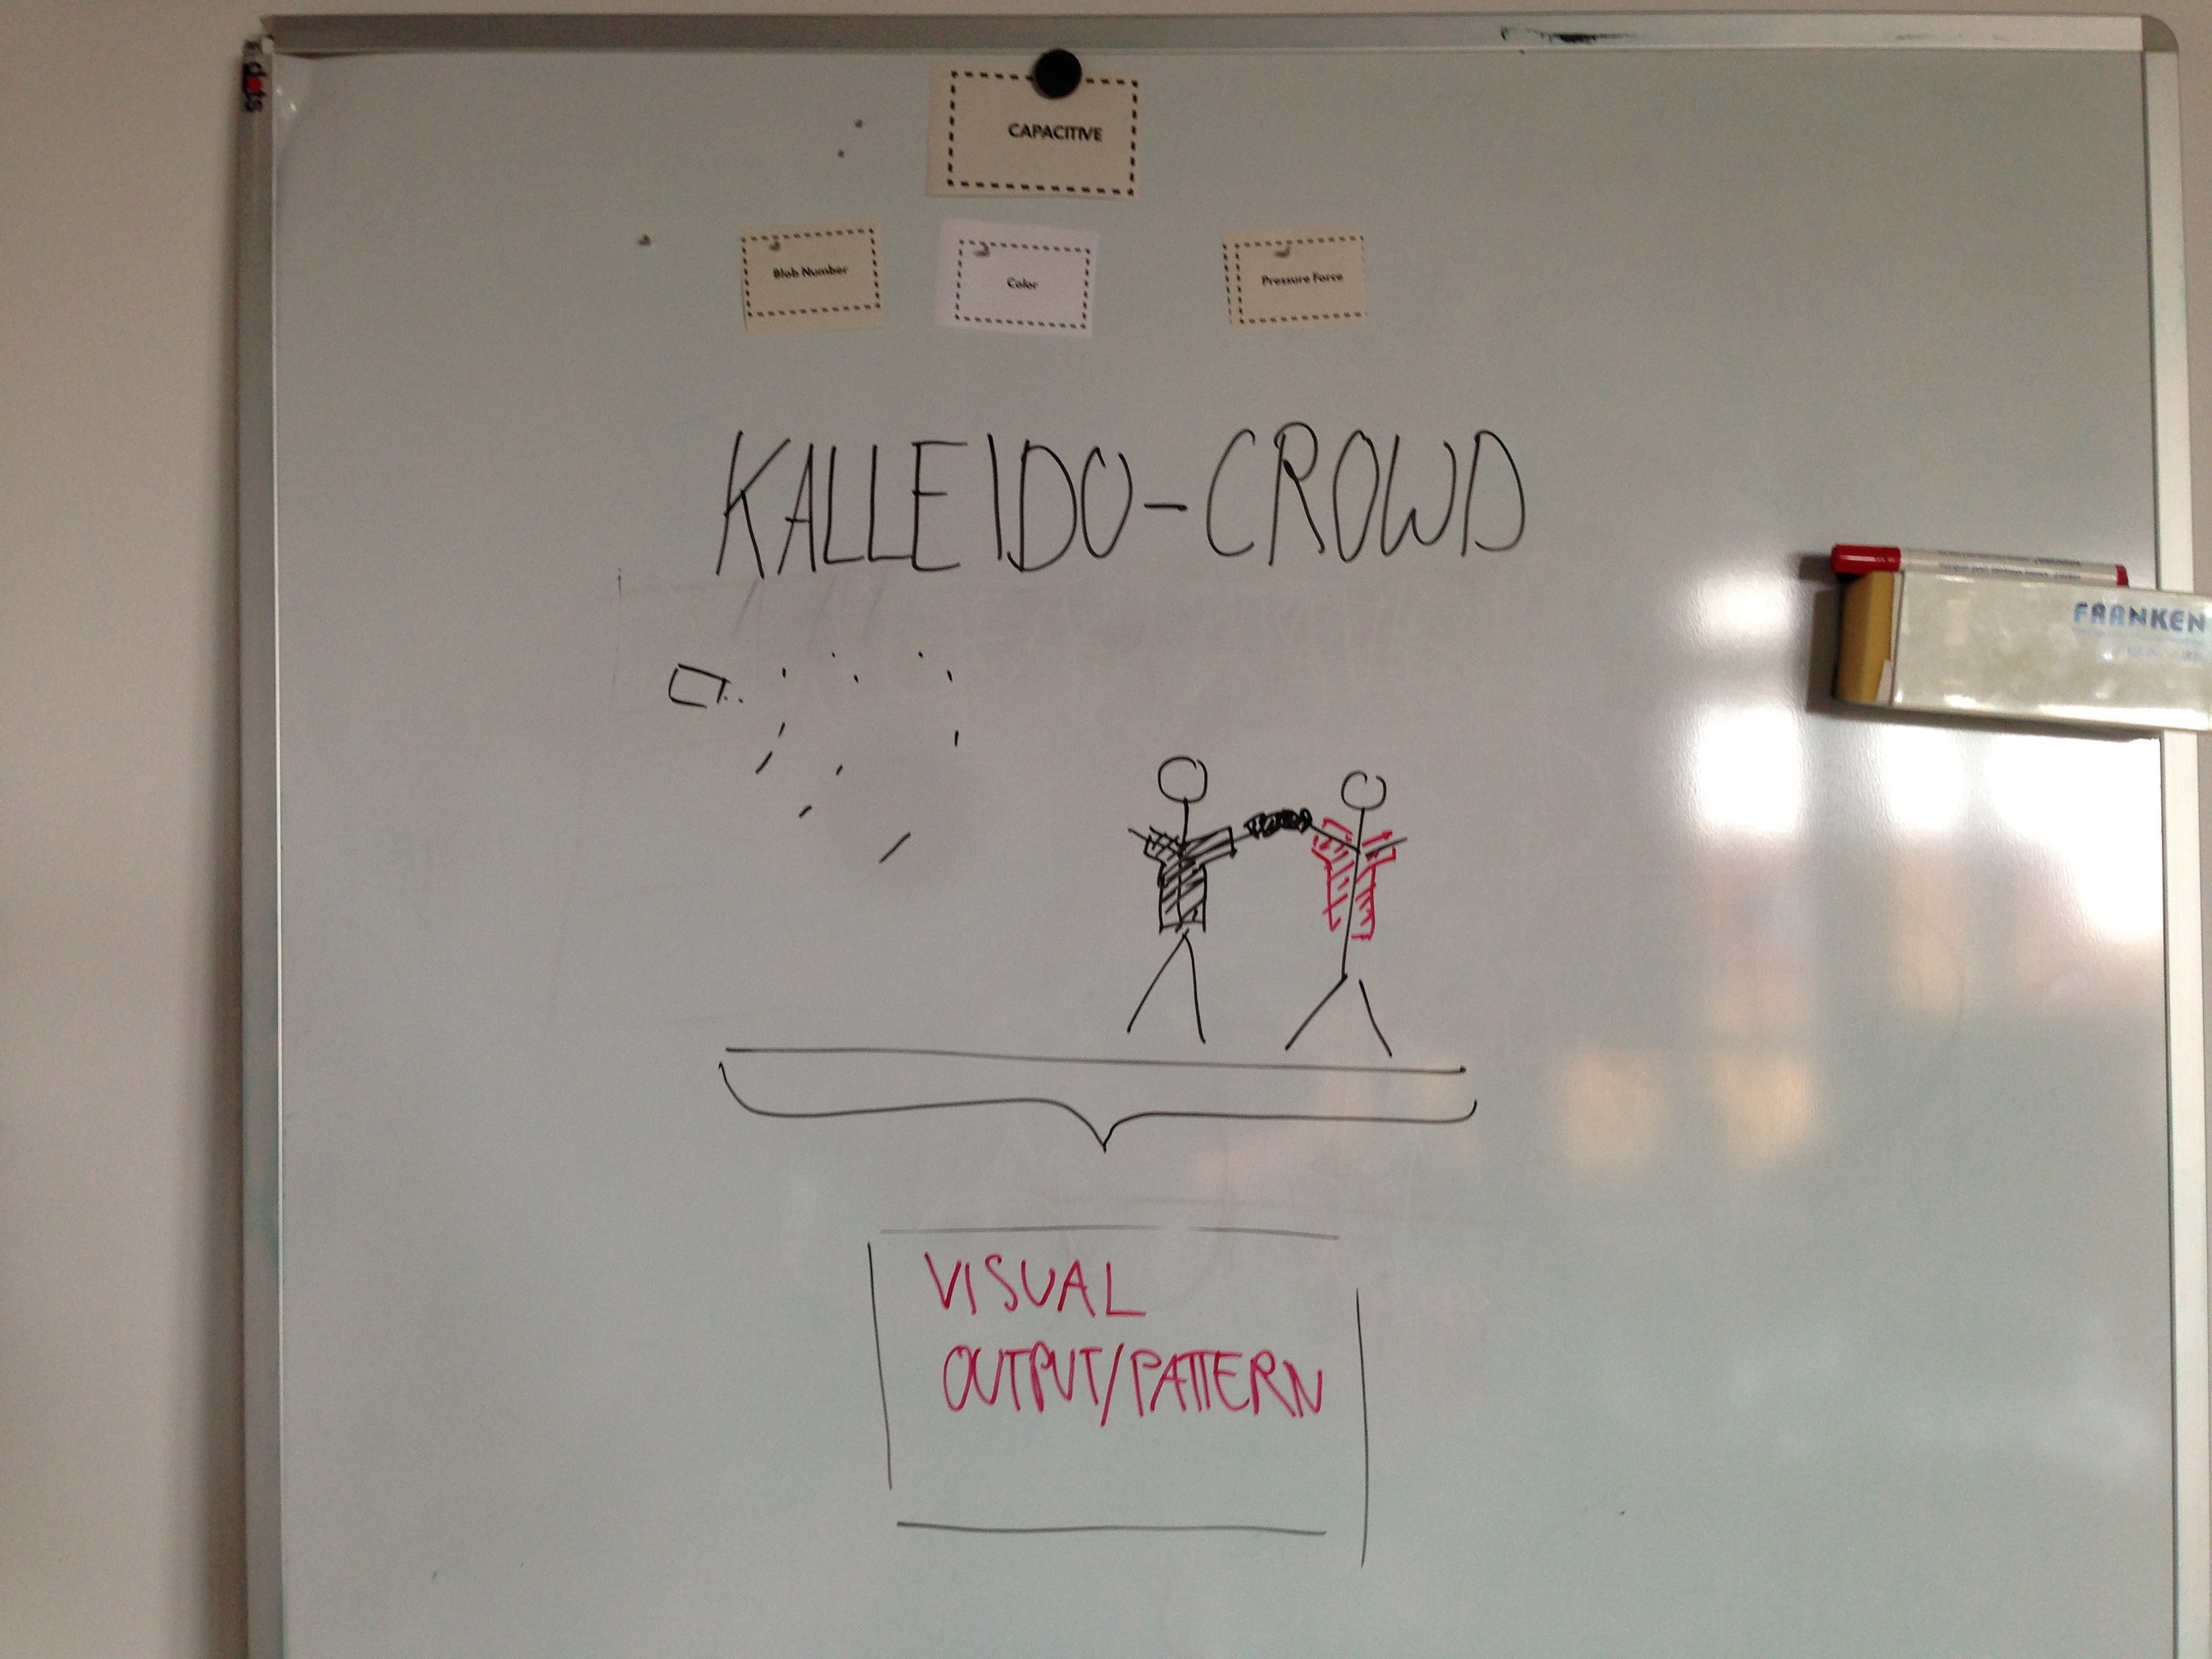 dots
CAPACITIVE
Blob Number
Color
Pressure Force
KALLEIDO-CROWD
FRANKEN
VISUAL
OUTPUT/PATTERN